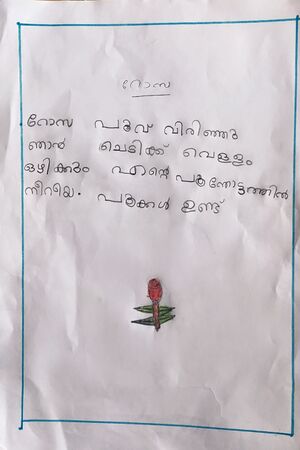 റോസ
റോസ പൂവ് വിരിഞ്ഞു
ഞാൻ ചെടിക്ക് വെള്ളം
ഒഴിക്കും എന്റെ പൂന്തോട്ടത്തിൽ
നിറയെ. പൂക്കൾ ഉണ്ട്